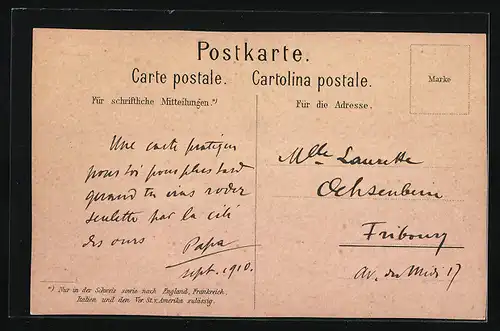 Postkarte.
Carte postale. Cartolina postale.
Für schriftliche Mitteilungen.*)
Für die Adresse.
Marke
Une carte pratique
pour toi pour plus tard
quand tu iras roder
seulette par la cité
des ours
Papa
sept. 1910.
*) Nur in der Schweiz sowie nach England, Frankreich,
Italien und den Ver. St. v. Amerika zulässig.
Mlle Laurette
Ochsenbein
Fribourg
Av. du Midi 17